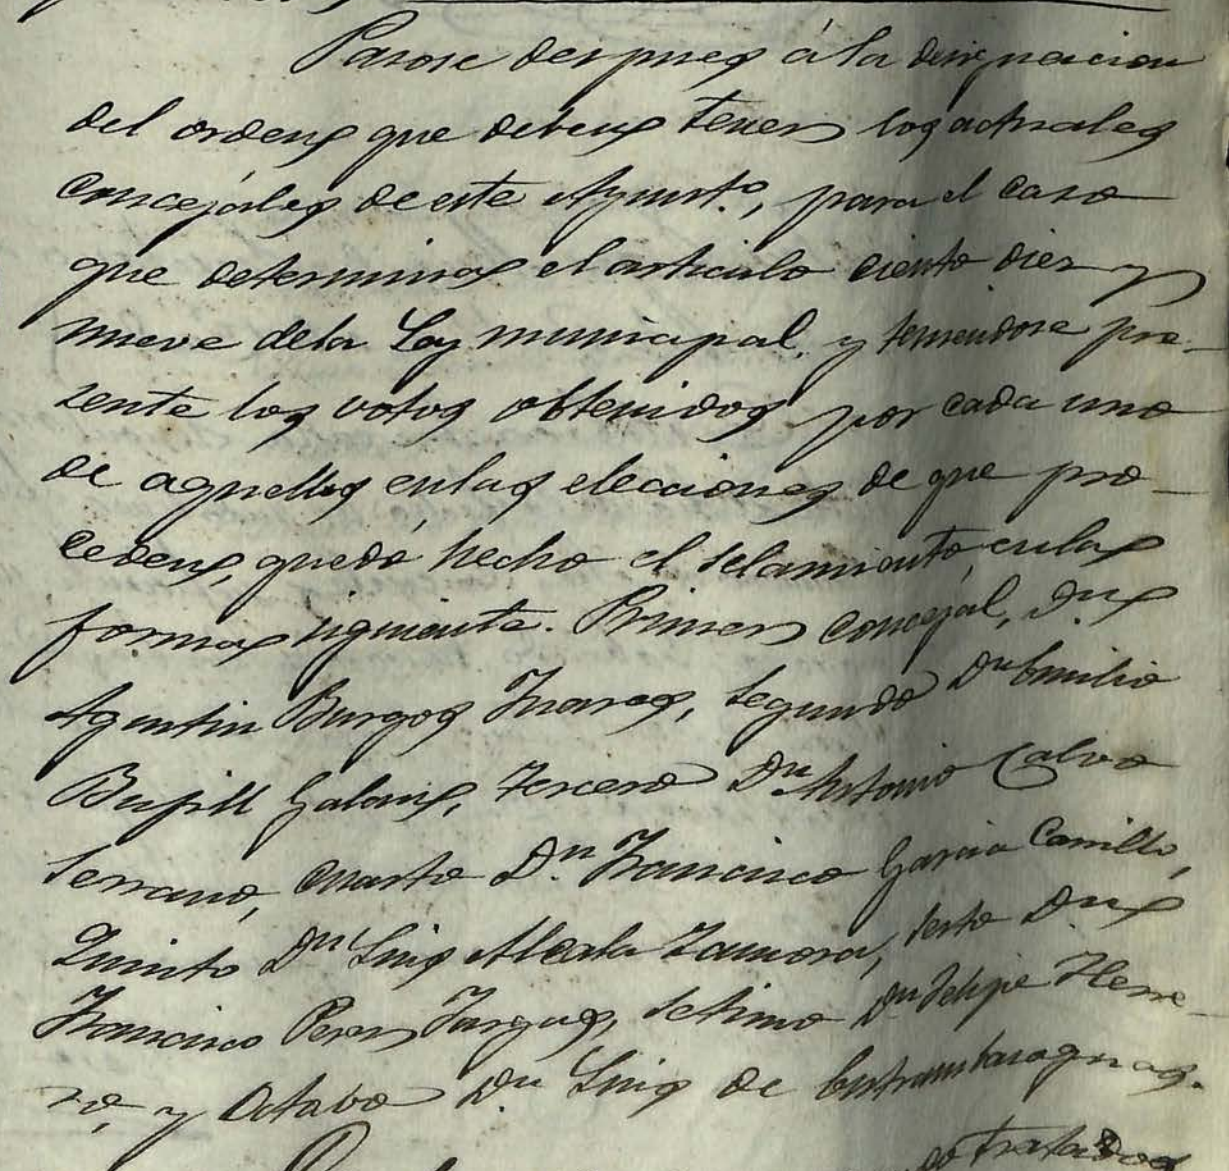 Pasose despues á la designacion
del orden que deben tener los actuales
concejales de este Ayunt.º, para el caso
que determina el articulo ciento diez y
nueve de la Ley municipal, y teniendose pre-
sente los votos obtenidos por cada uno
de aquellos en las elecciones de que pro-
ceden, quedó hecho el señalamiento, en la
forma siguiente. Primer concejal, Dn
Agustin Burgos Juares, Segundo Dn Emilio
Bufill Galan, Tercero Dn Antonio Calvo
Serrano, cuarto Dn Francisco Garcia Carrillo,
Quinto Dn Luis Alcala Zamora, sesto Dn
Francisco Perez Vargas, setimo Dn Felipe Herre-
ro, y Octavo Dn Luis de Entrambasaguas.
tratados